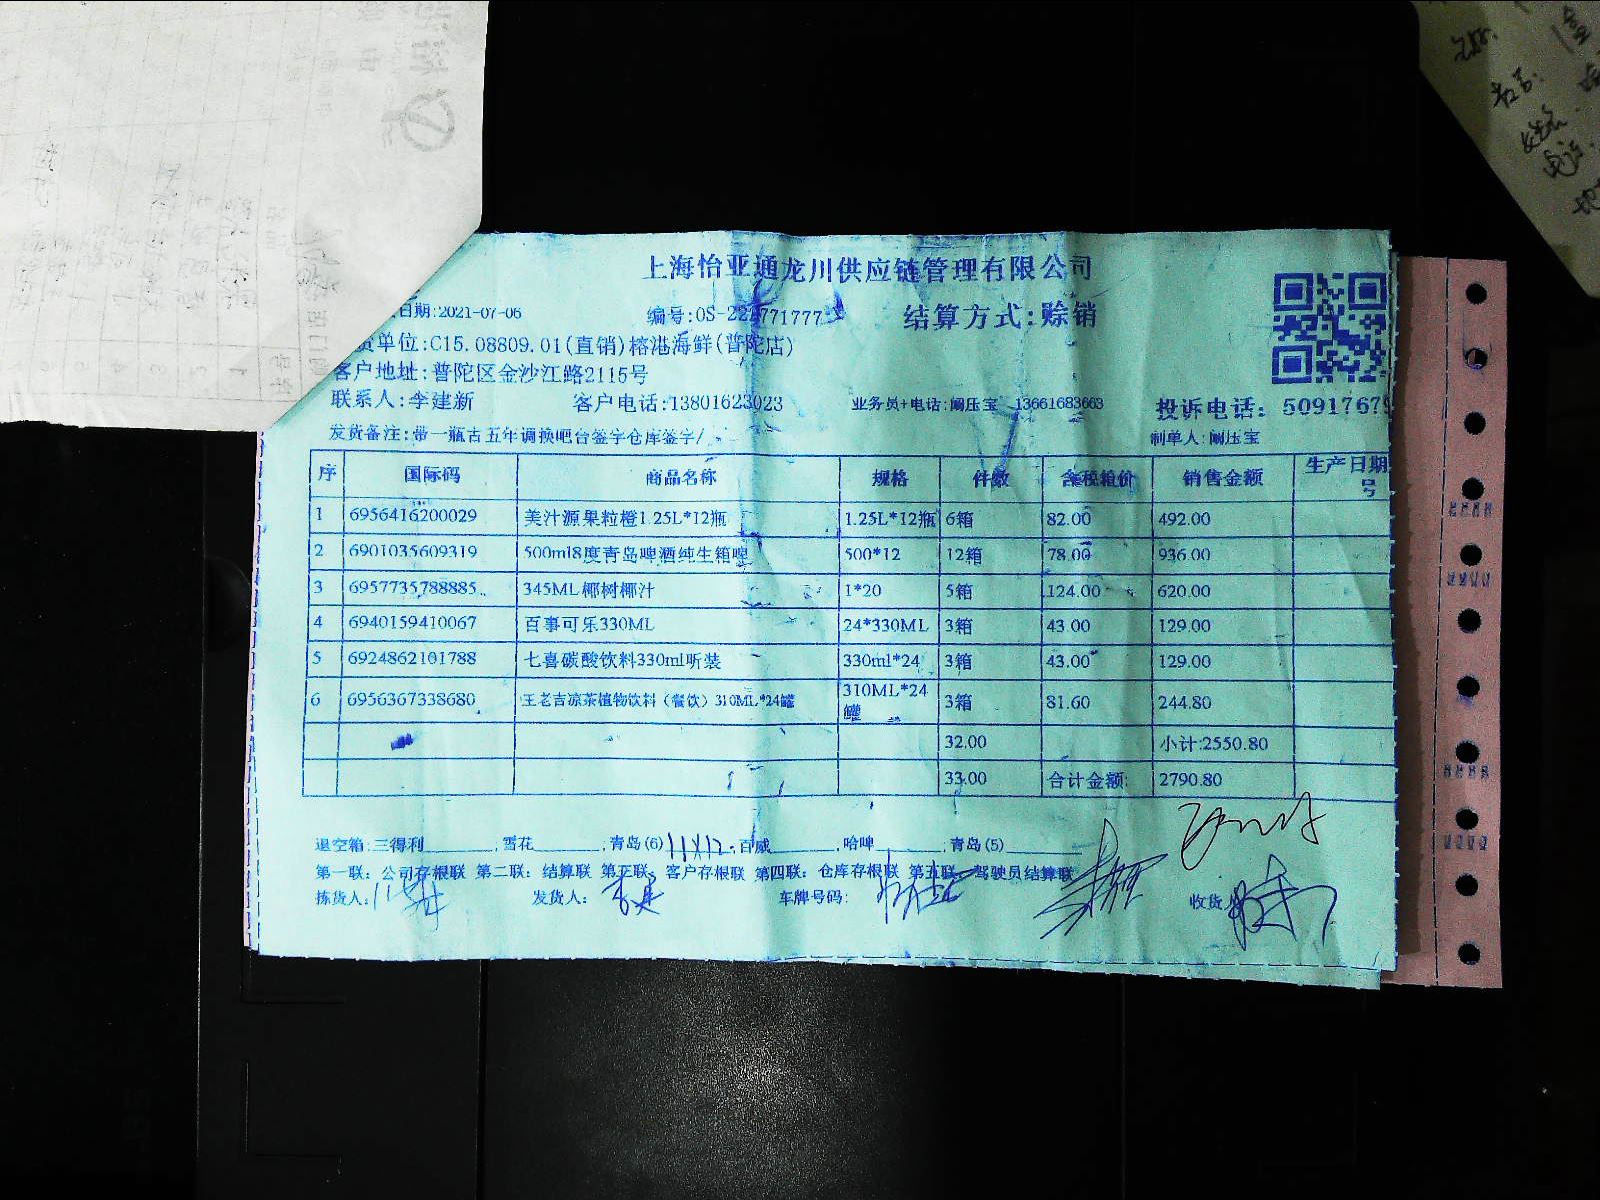 上海怡亚通龙川供应链管理有限公司
日期:2021-07-06
结算方式:赊销
货单位:C15.08809.01(直销)榕港海鲜(普陀店)
客户地址:普陀区金沙江路2115号
联系人:李建新 客户电话:13801623023 业务员+电话:阚压宝 13661683663 投诉电话:
发货备注:带一瓶古五年调换吧台签字仓库签字/ 制单人:阚压宝
序 国际码 商品名称 规格 件数 含税箱价 销售金额 生产日期
号
1 6956416200029 美汁源果粒橙1.25L*12瓶 1.25L*12瓶 6箱 82.00 492.00
2 6901035609319 500ml8度青岛啤酒纯生箱啤 500*12 12箱 78.00 936.00
3 6957735788885 345ML椰树椰汁 1*20 5箱 124.00 620.00
4 6940159410067 百事可乐330ML 24*330ML 3箱 43.00 129.00
5 6924862101788 七喜碳酸饮料330ml听装 330ml*24 3箱 43.00 129.00
6 6956367338680 王老吉凉茶植物饮料（餐饮）310ML*24罐 310ML*24罐 3箱 81.60 244.80
32.00 小计:2550.80
33.00 合计金额: 2790.80
退空箱:三得利 ,雪花 ,青岛(6) 11X12 百威 ,哈啤 ,青岛(5)
第一联：公司存根联 第二联：结算联 第三联：客户存根联 第四联：仓库存根联 第五联：驾驶员结算联
拣货人: 发货人: 车牌号码: 收货人